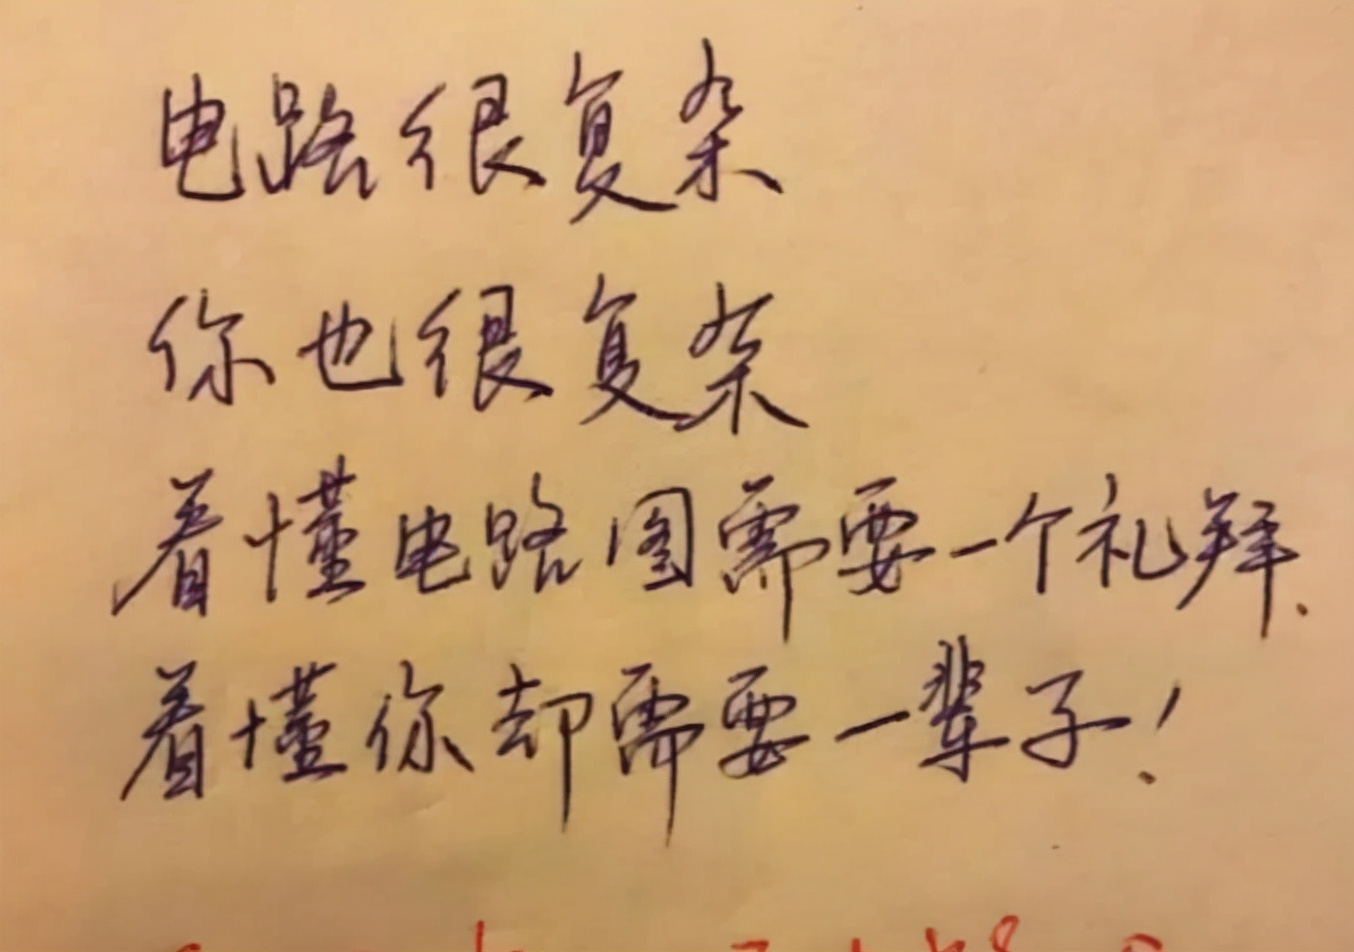 电路很复杂
你也很复杂
看懂电路图需要一个礼拜.
看懂你却需要一辈子!